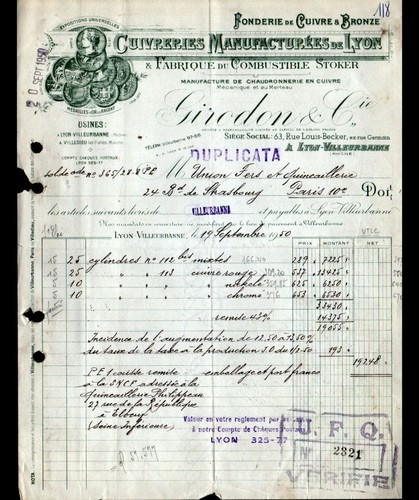 118
FONDERIE DE CUIVRE & BRONZE
EXPOSITIONS UNIVERSELLES
CUIVRERIES MANUFACTURÉES DE LYON
& FABRIQUE DU COMBUSTIBLE STOKER
MANUFACTURE DE CHAUDRONNERIE EN CUIVRE
Mécanique et au Marteau
Girodon & Cie
SIÈGE SOCIAL: 63, Rue Louis-Becker,
A LYON-VILLEURBANNE
USINES:
A LYON-VILLEURBANNE
A VILLEDIEU
COMPTE CHÈQUES POSTAUX
LYON 325-77
DUPLICATA
solde ode n° 365/28.8 PE M. Union Fers & Quincaillerie
24 Bd de Strasbourg Paris 10e Doit
les articles suivants livrés de VILLEURBANNE et payables à Lyon-Villeurbanne
LYON VILLEURBANNE, le 19 Septembre 1950
PRIX MONTANT NET
25 cylindres n° 112 bis mixtes 289 7225
25 " " 113 cuivre rouge 537 13425
10 " " " nickelé 625 6250
10 " " " chromé 653 6530
33430
remise 43% 14375
19055
Incidence de l'augmentation de 12.50 à 13.50%
du taux de la taxe à la production 193
19248
PE 1 caisse remise emballage et port franco
à la SNCF adressée à la
Quincaillerie Philippeau
27 rue de la République
à Elbeuf
(Seine Inférieure)
Valeur en votre règlement par
à notre Compte de Chèques Postaux
LYON 325-77
U.F.Q.
N° 2321
VÉRIFIÉ
NOTA